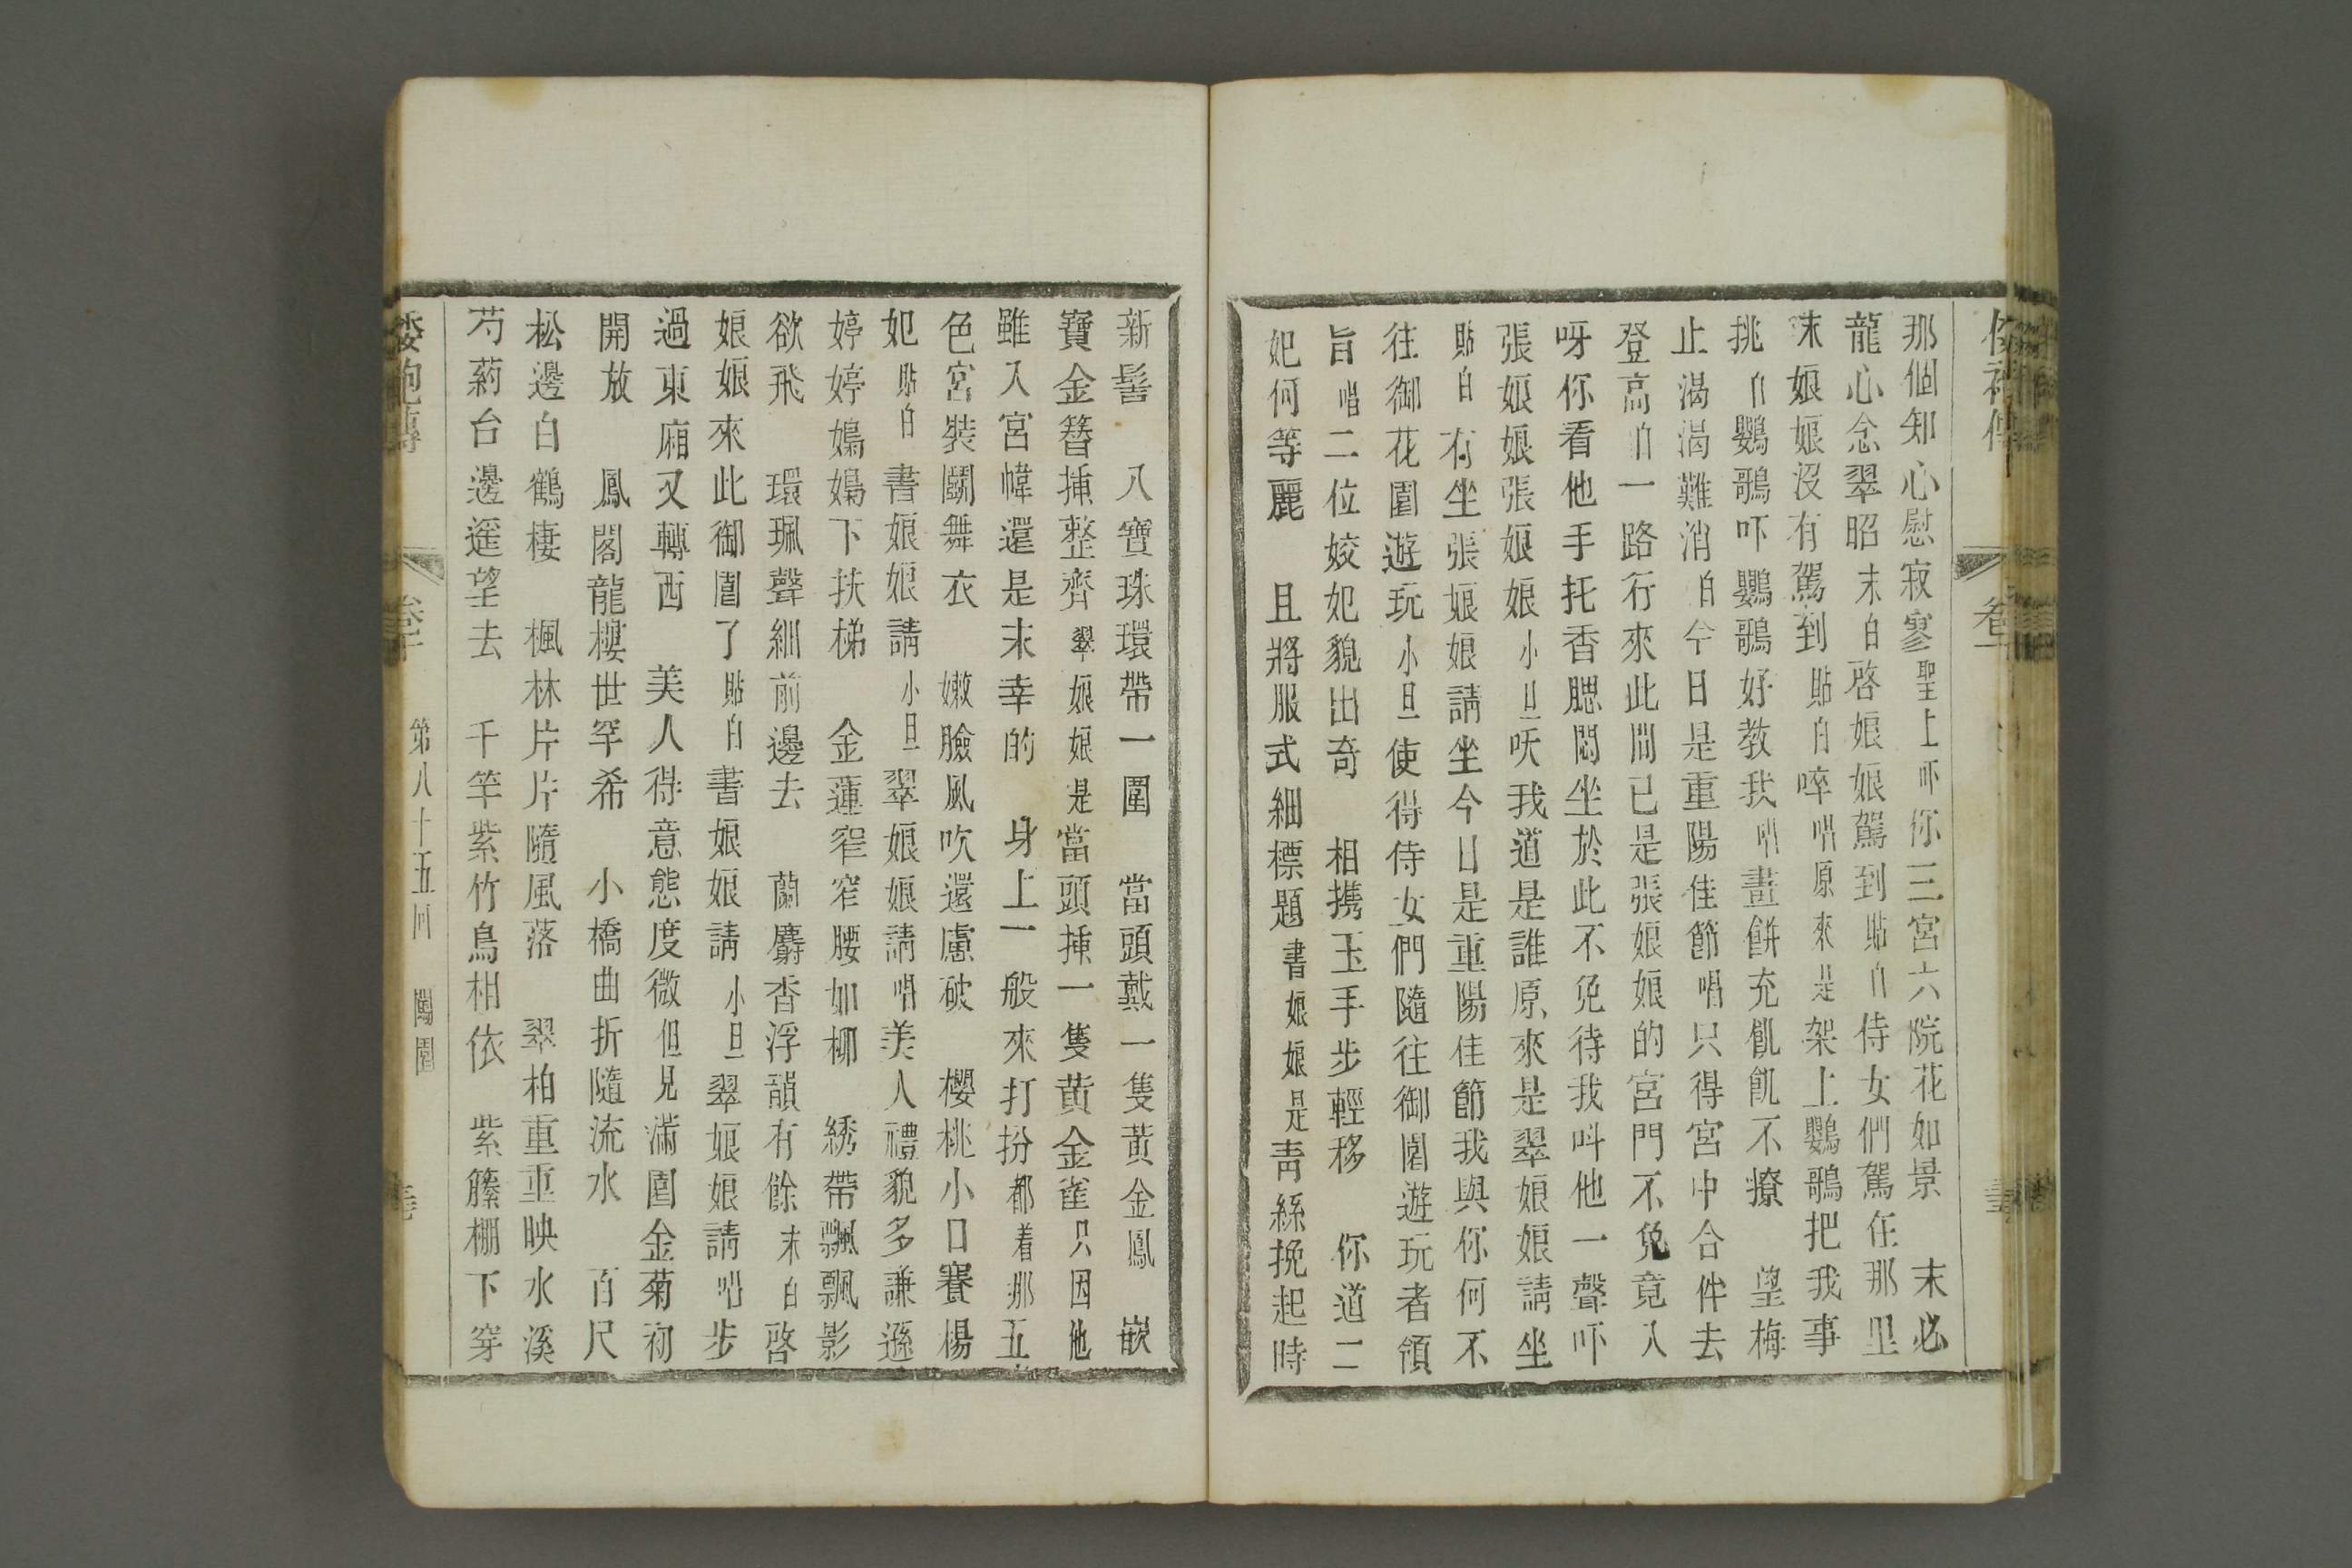 那個知心慰寂寥聖上吓你三宮六院花如景　末必
龍心念翠昭末白啓娘娘駕到貼白侍女們駕在那里
末娘娘沒有駕到貼白啐唱原來是架上鸚鵡把我事
挑白鸚鵡吓鸚鵡好教我唱畫餅充飢飢不撩　望梅
止渴渴難消白今日是重陽佳節唱只得宮中合伴去
登高白一路行來此間已是張娘娘的宮門不免竟入
呀你看他手托香腮悶坐於此不免待我呌他一聲吓
張娘娘張娘娘小旦呀我道是誰原來是翠娘娘請坐
貼白有坐張娘娘請坐今日是重陽佳節我與你何不
往御花園遊玩小旦使得侍女們隨往御園遊玩者領
旨唱二位姣妃貌出奇　相携玉手步輕移　你道二
妃何等麗　且將服式細標題書娘娘是靑絲挽起時
新髻　八寶珠環帶一圍　當頭戴一隻黃金鳳　嵌
寶金簪揷整齊翠娘娘是當頭揷一隻黃金雀只因他
雖入宮幃還是末幸的　身上一般來打扮都着那五
色宮裝鬭舞衣　嫩臉風吹還慮破　櫻桃小口賽楊
妃貼白書娘娘請小旦翠娘娘請唱美人禮貌多謙遜
婷婷嬝嬝下扶梯　金蓮窄窄腰如柳　綉帶飄飄影
欲飛　環珮聲細前邊去　蘭麝香浮韻有餘末白啓
娘娘來此御園了貼白書娘娘請小旦翠娘娘請唱步
過東廂又轉西　美人得意態度微但見滿園金菊初
開放　鳳閣龍樓世罕希　小橋曲折隨流水　百尺
松邊白鶴棲　楓林片片隨風落　翠柏重重映水溪
芍葯台邊遥望去　千竿紫竹鳥相依　紫籐棚下穿
倭袍傳　卷十　第八十五回　闖園